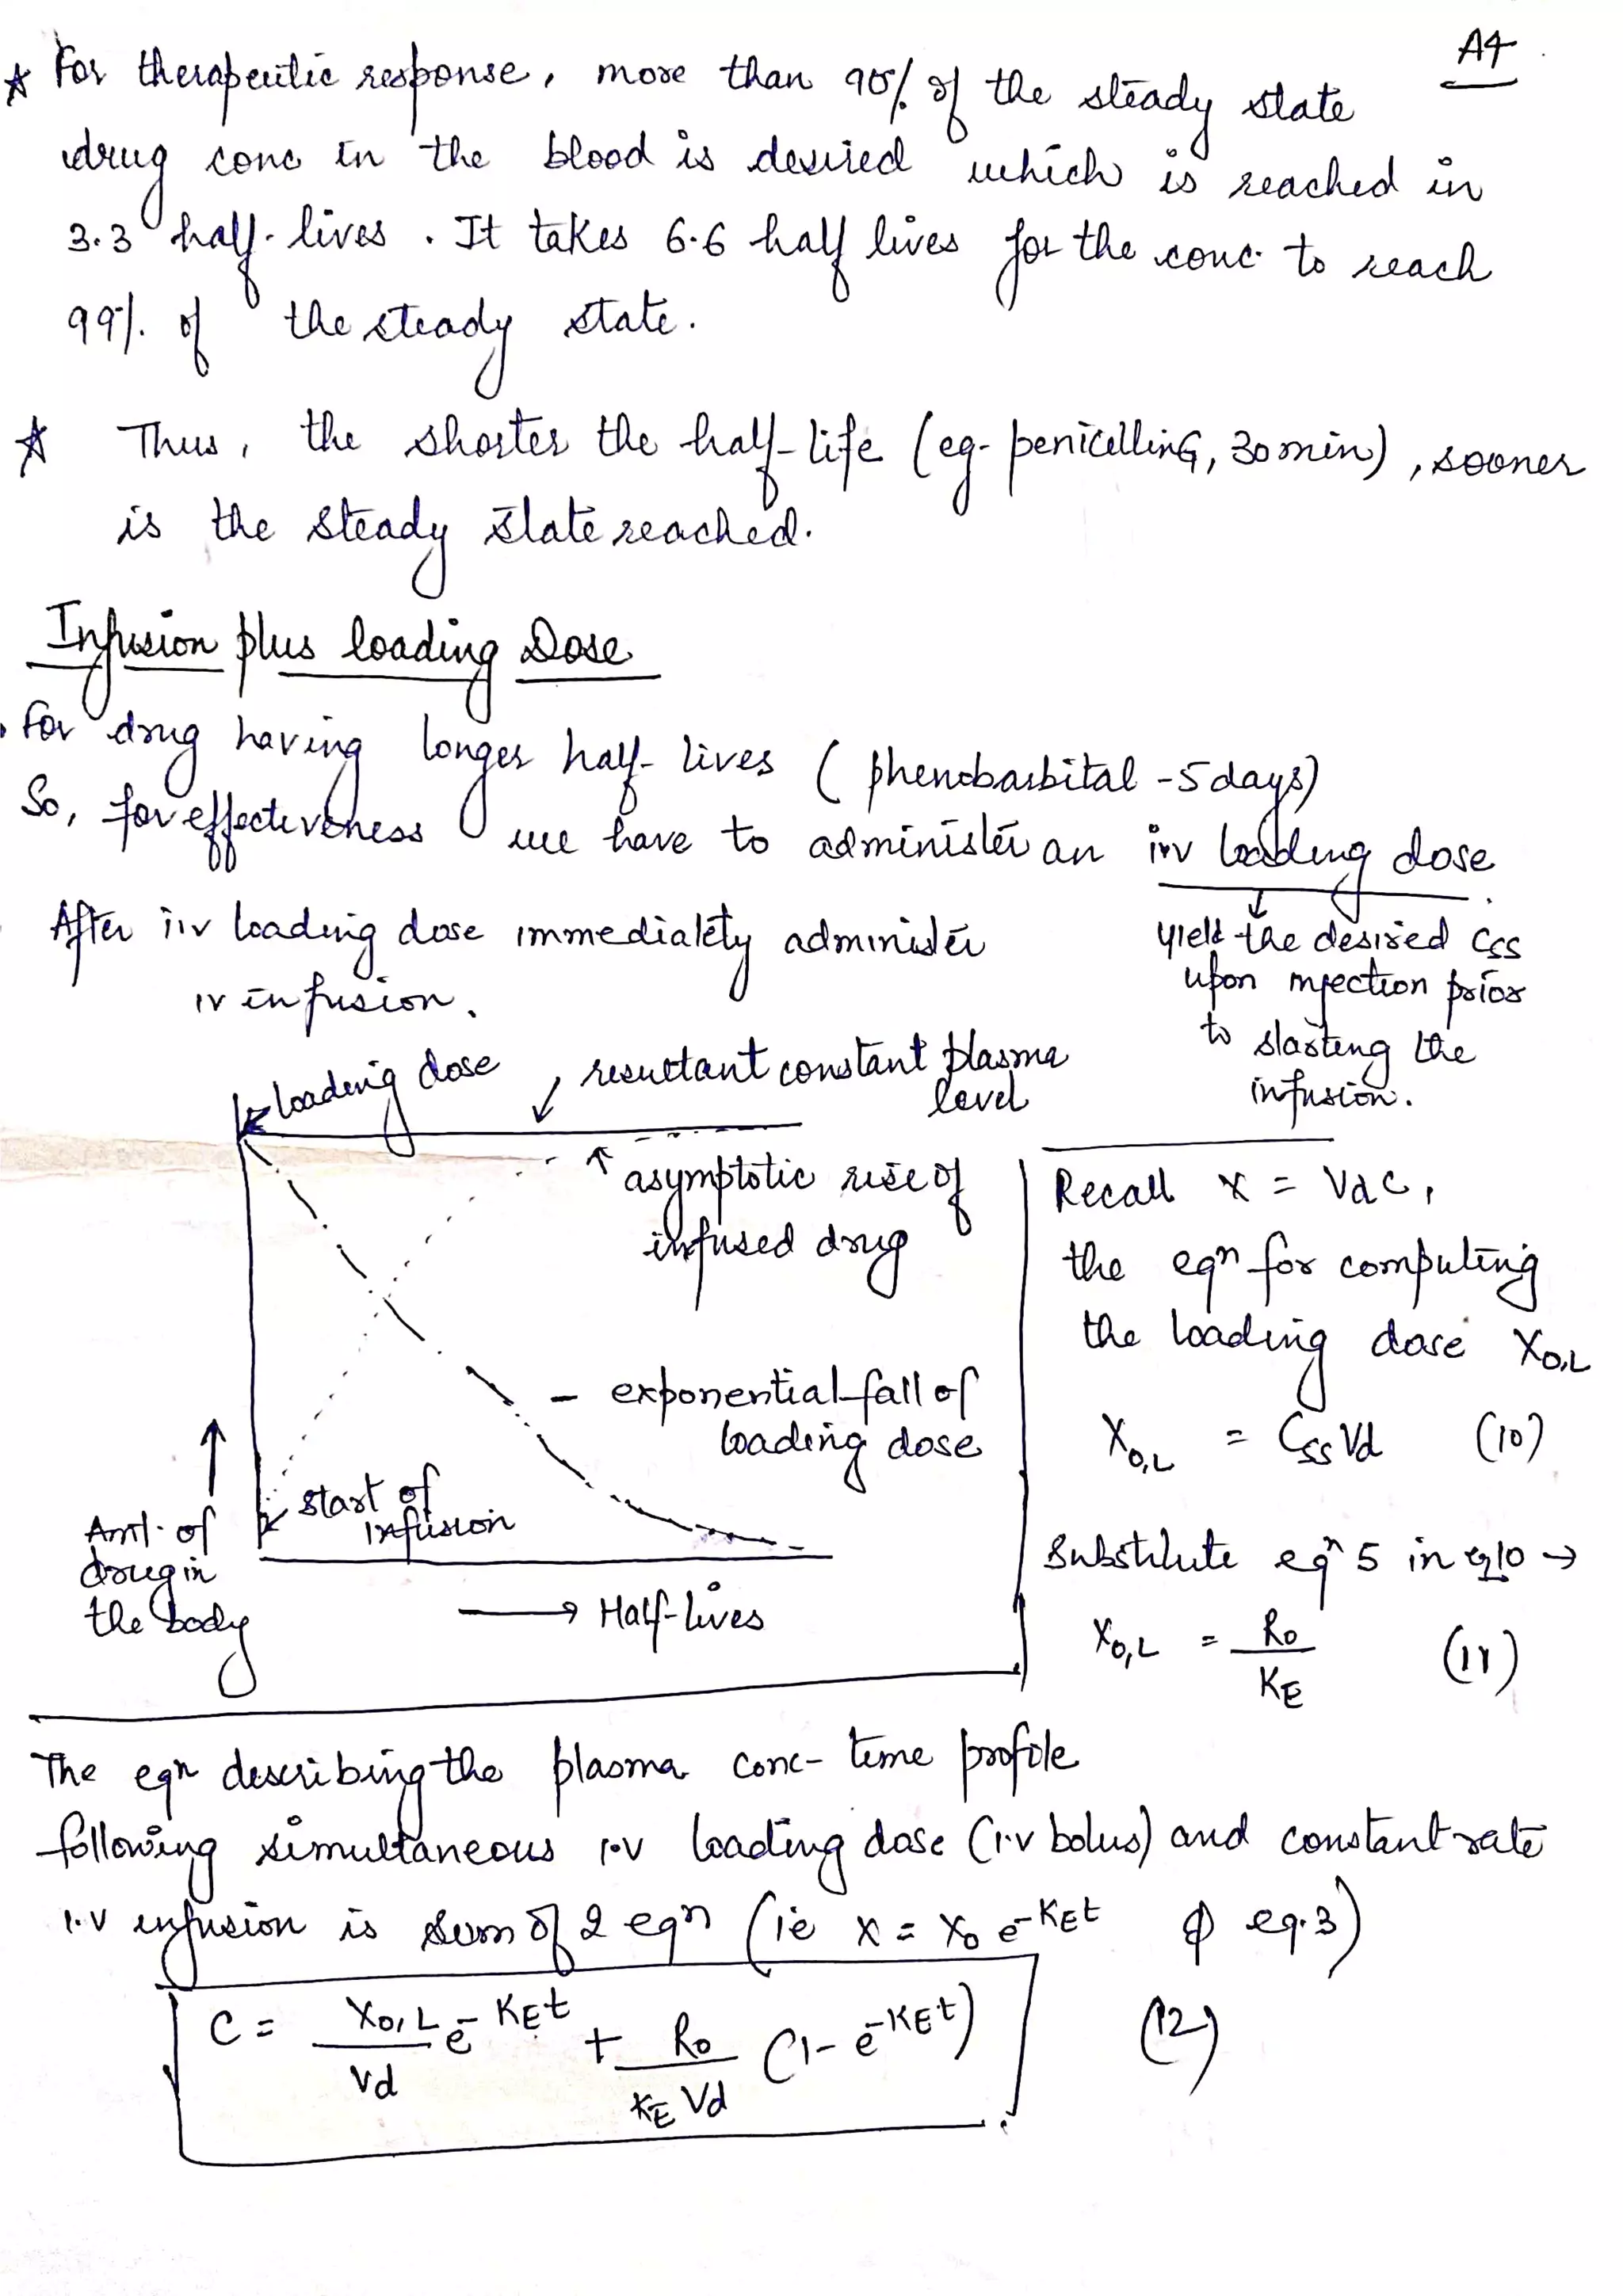 A4
* For therapeutic response, more than 90% of the steady state
drug conc in the blood is desired which is reached in
3.3 half-lives. It takes 6.6 half lives for the conc. to reach
99%. of the steady state.
* Thus, the shorter the half-life (eg- penicillinG, 30min), sooner
is the steady state reached.
Infusion plus loading Dose
. For drug having longer half-lives (phenobarbital -5days)
So, for effectiveness we have to administer an iv loading dose.
↓
yield the desired Css
upon injection prior
to starting the
infusion.
After i.v loading dose immediately administer
iv infusion.
loading dose
resultant constant plasma
level
asymptotic rise of
infused drug
- exponential fall of
loading dose
start of
infusion
Amt. of
drug in
the body
→ Half-lives
Recall X = VdC,
the eqn for computing
the loading dose X0,L
X0,L = Css Vd (10)
Substitute eqn 5 in eq10 →
X0,L = R0 / KE (11)
The eqn describing the plasma conc- time profile
following simultaneous i.v loading dose (i.v bolus) and constant rate
i.v infusion is sum of 2 eqn (ie X = X0 e^-KEt & eq.3)
C = X0,L / Vd e^-KEt + R0 / KE Vd (1- e^-KEt) (12)